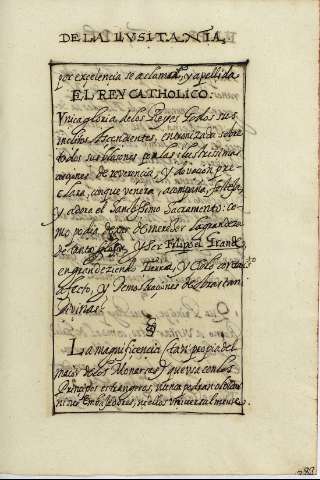 DE LA LUSITANIA,
por excelencia se aclamad, y apellida
EL REY CATHOLICO:
Vnica gloria de los Reyes Godos sus
inclitos Ascendientes, entronizada sobre
todos sus blasones por las ilustrissimas
acciones de reverencia, y devocion pre
clara, conque venera, acompaña, festeja,
y adora el Santissimo Sacramento: co
mo podia dexar de merecer la grandeza
de tanto y Ser Filipe el Grande
engrandeziendo tierra, y Cielo con
afecto, y Demostraciones de
Divinas?
La magnificencia (tan propia del
maior de los Monarcas) que vsa con los
Principes estrangeros, nunca podran olvidar
ni sus Embaxadores, ni ellos vniversalmente